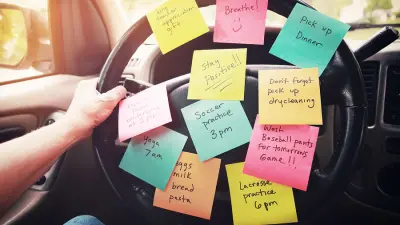 appreciation
gift
Breathe!
Pick up
Dinner
Stay
Positive!!
Don't forget
pick up
drycleaning
Soccer
practice
3pm
Wash
Baseball pants
for tomorrows
Game!!
Yoga
7am
eggs
milk
bread
pasta
Lacrosse
practice
6pm